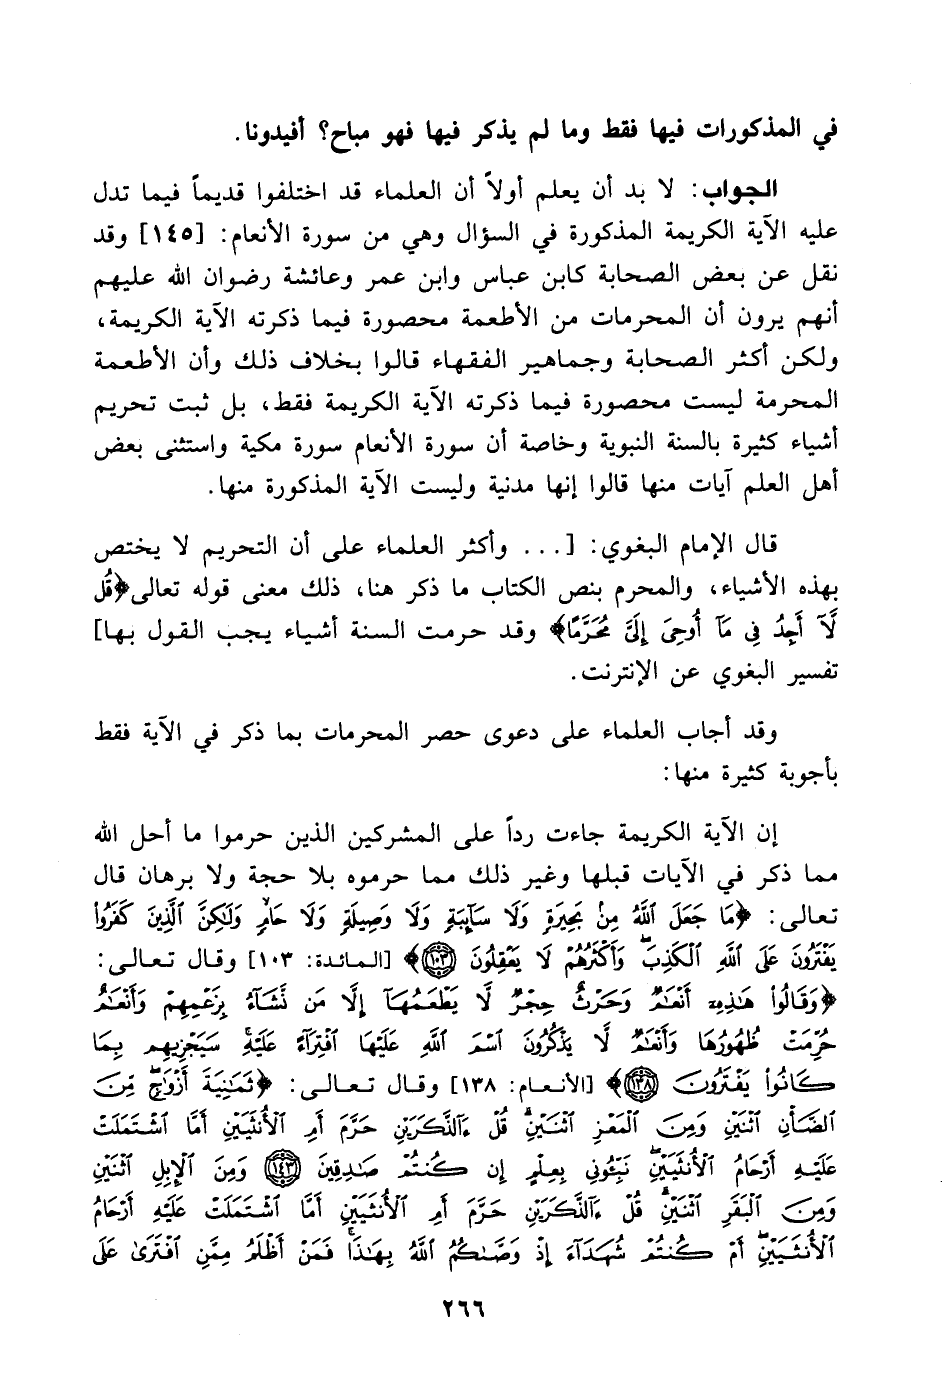 في المذكورات فيها فقط وما لم يذكر فيها فهو مباح؟ أفيدونا.
الجواب: لا بد أن يعلم أولاً أن العلماء قد اختلفوا قديماً فيما تدل
عليه الآية الكريمة المذكورة في السؤال وهي من سورة الأنعام: [١٤٥] وقد
نقل عن بعض الصحابة كابن عباس وابن عمر وعائشة رضوان الله عليهم
أنهم يرون أن المحرمات من الأطعمة محصورة فيما ذكرته الآية الكريمة،
ولكن أكثر الصحابة وجماهير الفقهاء قالوا بخلاف ذلك وأن الأطعمة
المحرمة ليست محصورة فيما ذكرته الآية الكريمة فقط، بل ثبت تحريم
أشياء كثيرة بالسنة النبوية وخاصة أن سورة الأنعام سورة مكية واستثنى بعض
أهل العلم آيات منها قالوا إنها مدنية وليست الآية المذكورة منها.
قال الإمام البغوي: [... وأكثر العلماء على أن التحريم لا يختص
بهذه الأشياء، والمحرم بنص الكتاب ما ذكر هنا، ذلك معنى قوله تعالى ﴿قُل
لَّآ أَجِدُ فِى مَآ أُوحِىَ إِلَىَّ مُحَرَّمًا﴾ وقد حرمت السنة أشياء يجب القول بها]
تفسير البغوي عن الإنترنت.
وقد أجاب العلماء على دعوى حصر المحرمات بما ذكر في الآية فقط
بأجوبة كثيرة منها:
إن الآية الكريمة جاءت رداً على المشركين الذين حرموا ما أحل الله
مما ذكر في الآيات قبلها وغير ذلك مما حرموه بلا حجة ولا برهان قال
تعالى: ﴿مَا جَعَلَ ٱللَّهُ مِنۢ بَحِيرَةٍ وَلَا سَآئِبَةٍ وَلَا وَصِيلَةٍ وَلَا حَامٍ وَلَٰكِنَّ ٱلَّذِينَ كَفَرُوا۟
يَفْتَرُونَ عَلَى ٱللَّهِ ٱلْكَذِبَ وَأَكْثَرُهُمْ لَا يَعْقِلُونَ ١٠٣﴾ [المائدة: ١٠٣] وقال تعالى:
﴿وَقَالُوا۟ هَٰذِهِۦٓ أَنْعَٰمٌ وَحَرْثٌ حِجْرٌ لَّا يَطْعَمُهَآ إِلَّا مَن نَّشَآءُ بِزَعْمِهِمْ وَأَنْعَٰمٌ
حُرِّمَتْ ظُهُورُهَا وَأَنْعَٰمٌ لَّا يَذْكُرُونَ ٱسْمَ ٱللَّهِ عَلَيْهَا ٱفْتِرَآءً عَلَيْهِ سَيَجْزِيهِم بِمَا
كَانُوا۟ يَفْتَرُونَ ١٣٨﴾ [الأنعام: ١٣٨] وقال تعالى: ﴿ثَمَٰنِيَةَ أَزْوَٰجٍ مِّنَ
ٱلضَّأْنِ ٱثْنَيْنِ وَمِنَ ٱلْمَعْزِ ٱثْنَيْنِ قُلْ ءَآلذَّكَرَيْنِ حَرَّمَ أَمِ ٱلْأُنثَيَيْنِ أَمَّا ٱشْتَمَلَتْ
عَلَيْهِ أَرْحَامُ ٱلْأُنثَيَيْنِ نَبِّـُٔونِى بِعِلْمٍ إِن كُنتُمْ صَٰدِقِينَ ١٤٣ وَمِنَ ٱلْإِبِلِ ٱثْنَيْنِ
وَمِنَ ٱلْبَقَرِ ٱثْنَيْنِ قُلْ ءَآلذَّكَرَيْنِ حَرَّمَ أَمِ ٱلْأُنثَيَيْنِ أَمَّا ٱشْتَمَلَتْ عَلَيْهِ أَرْحَامُ
ٱلْأُنثَيَيْنِ أَمْ كُنتُمْ شُهَدَآءَ إِذْ وَصَّىٰكُمُ ٱللَّهُ بِهَٰذَا فَمَنْ أَظْلَمُ مِمَّنِ ٱفْتَرَىٰ عَلَى
٢٦٦